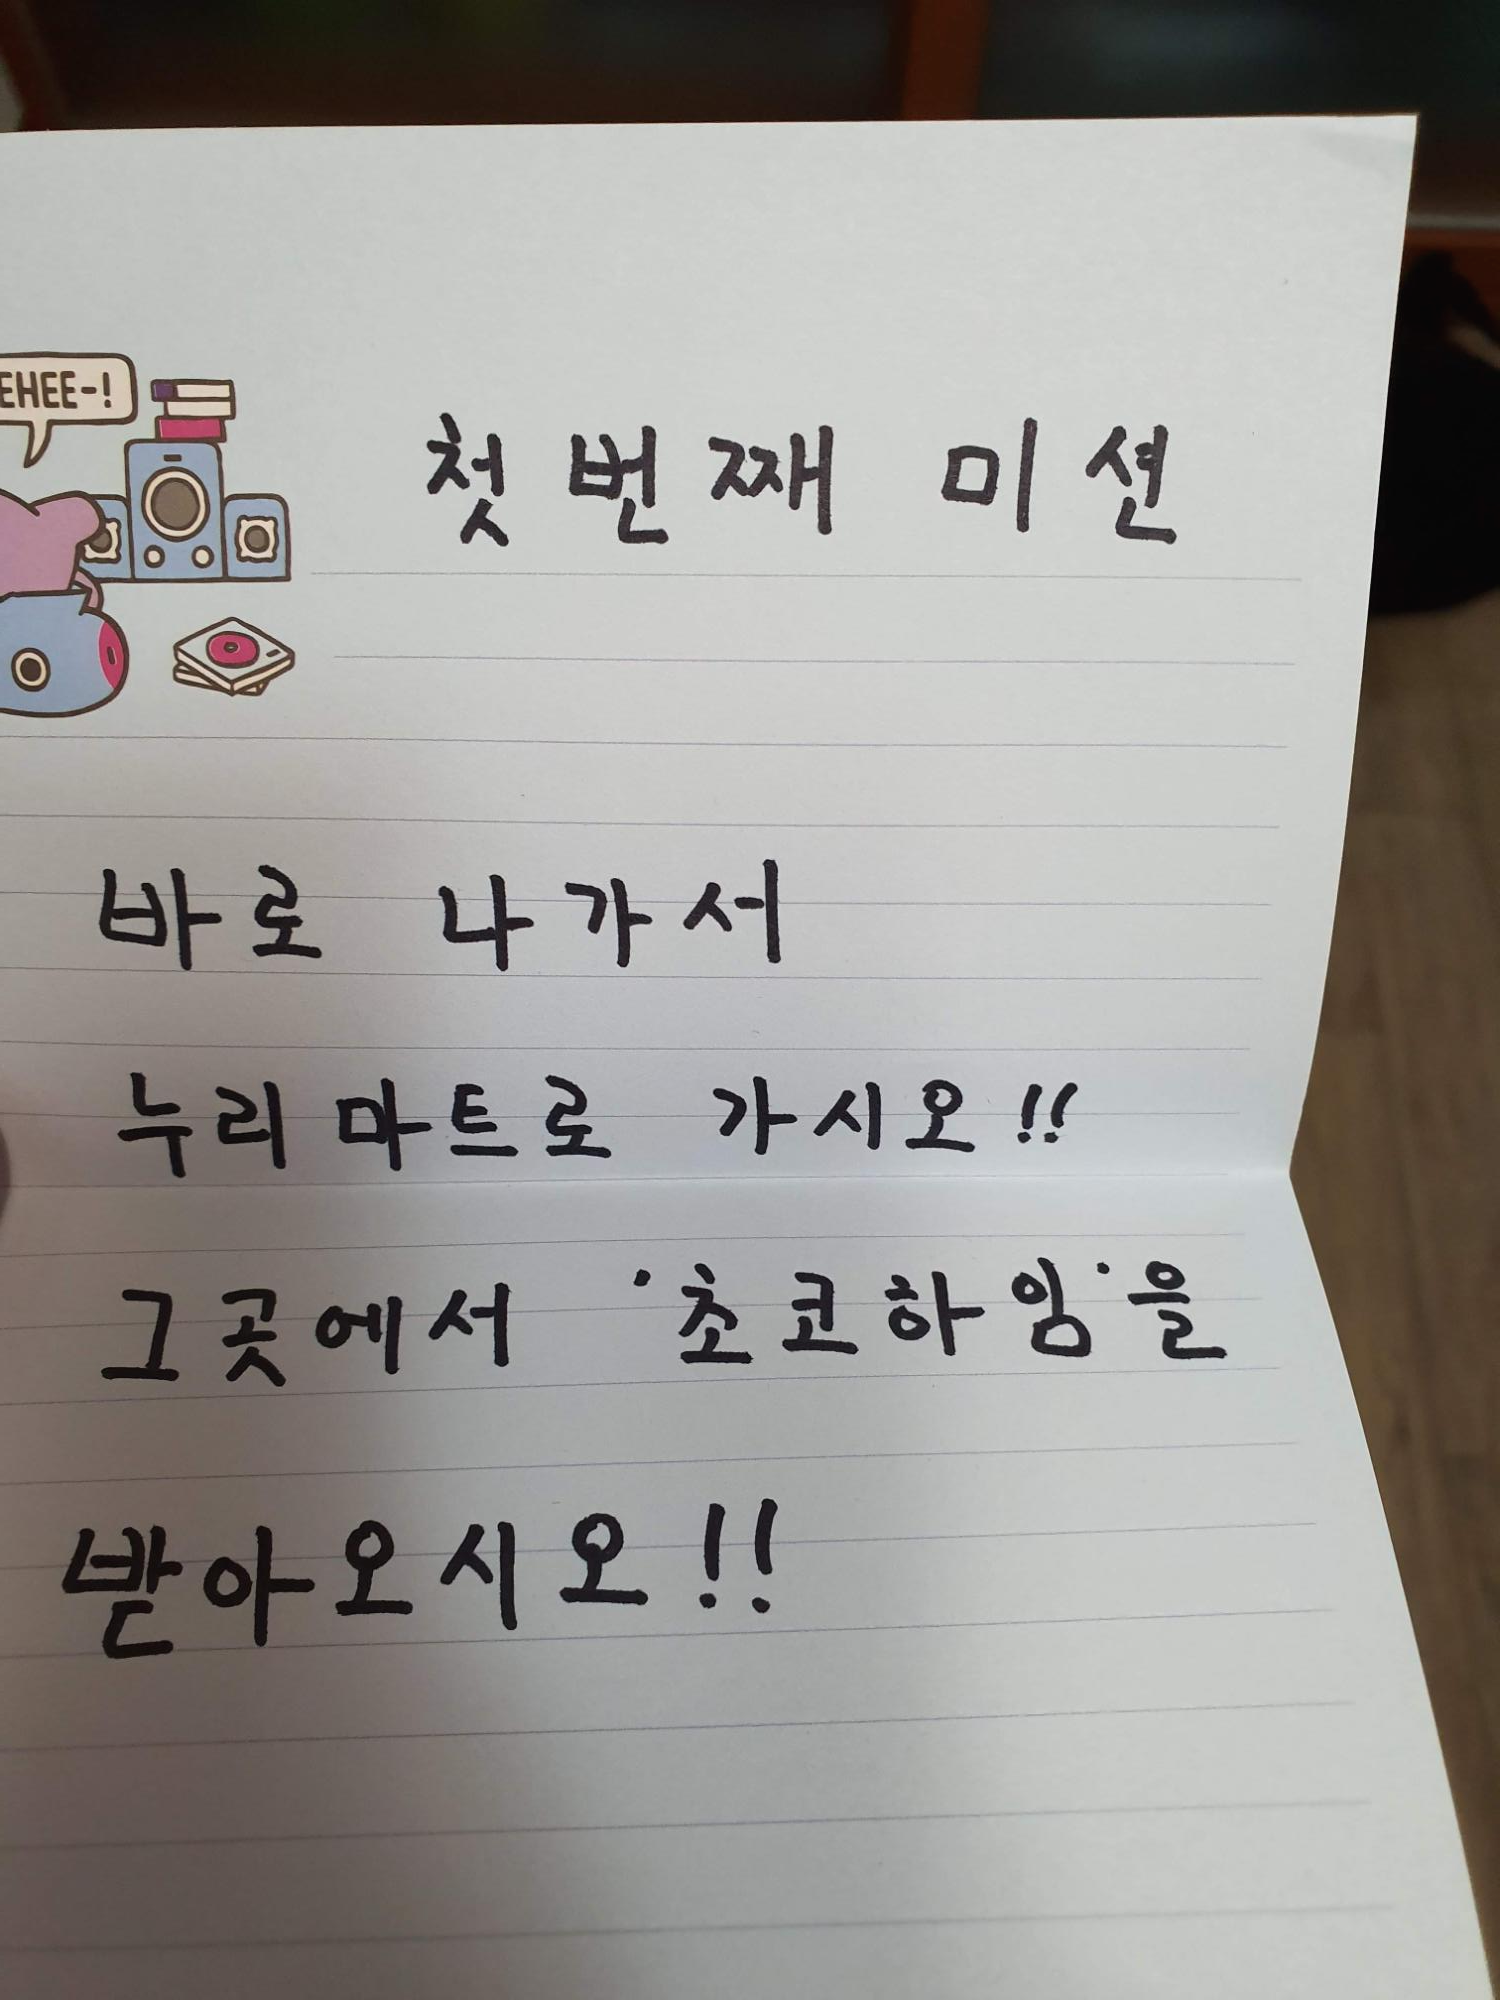 EHEE-!
첫번째 미션
바로 나가서
누리마트로 가시오!!
그곳에서 '초코하임'을
받아오시오!!